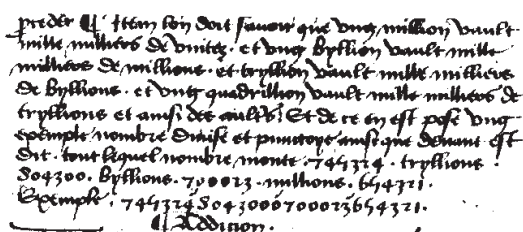 preder ¶ Item lon doit savoir que ung million vault
mille milliers de unitez · et ung byllion vault mille
milliers de millions · et tryllion vault mille milliers
de byllions · et ung quadrillion vault mille milliers de
tryllions et ainsi des aults Et de ce en est pose ung
exemple nombre divise et punctoye ainsi que devant est
dit · tout lequel nombre monte · 745324 · tryllions ·
804300 · byllions · 700023 · millions · 654321 ·
Exemple · 7453248043000700023654321 ·
¶ Addicion ·